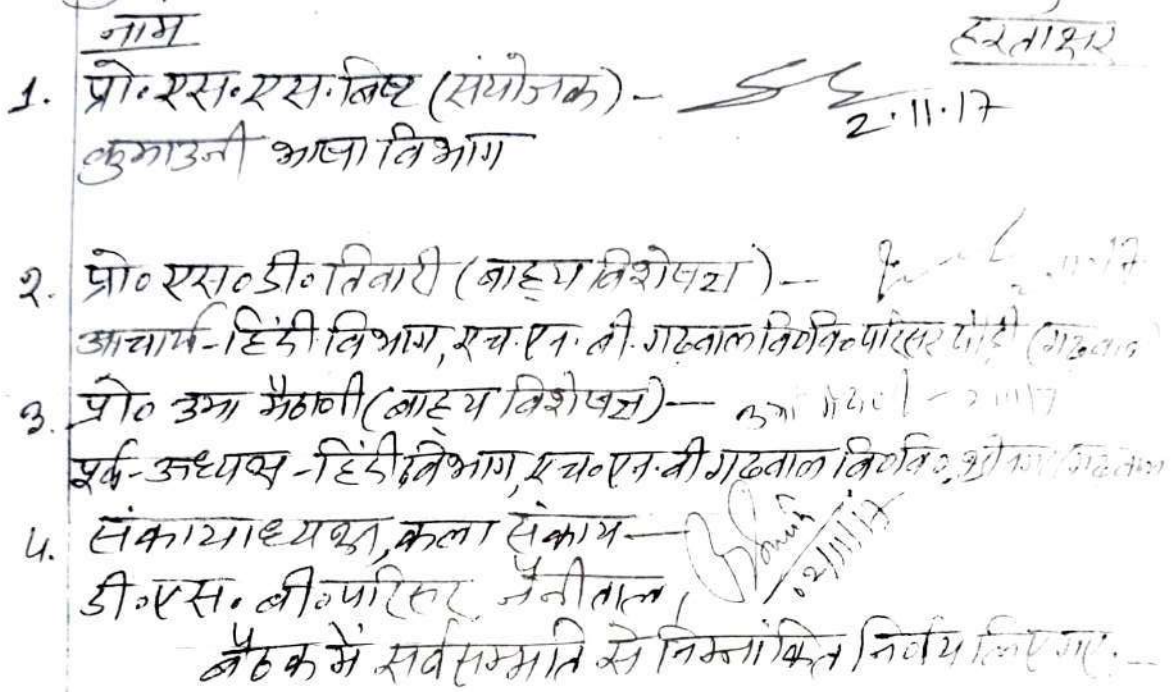 नाम हस्ताक्षर
1. प्रो॰ एस॰ एस॰ बिष्ट (संयोजक) -
2.11.17
कुमाउनी भाषा विभाग
२. प्रो॰ एस॰ डी॰ तिवारी (बाह्य विशेषज्ञ) -
आचार्य - हिंदी विभाग, एच. एन. बी. गढ़वाल वि॰वि॰ परिसर पौड़ी (गढ़वाल)
३. प्रो॰ उमा मैठाणी (बाह्य विशेषज्ञ) —
पूर्व - अध्यक्ष - हिंदी विभाग, एच॰ एन. बी गढ़वाल वि॰वि॰ श्रीनगर (गढ़वाल
4. संकायाध्यक्ष, कला संकाय —
02/11/17
डी॰ एस॰ बी॰ परिसर नैनीताल,
बैठक में सर्वसम्मति से निम्नांकित निर्णय लिए गए. —